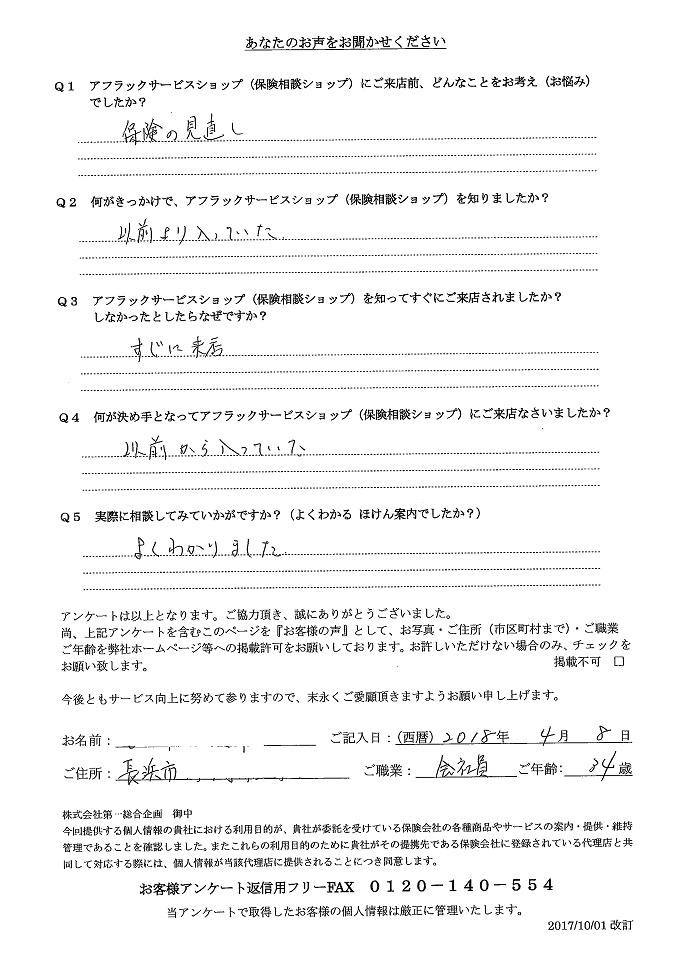 あなたのお声をお聞かせください
Q1 アフラックサービスショップ（保険相談ショップ）にご来店前、どんなことをお考え（お悩み）
でしたか？
保険の見直し
Q2 何がきっかけで、アフラックサービスショップ（保険相談ショップ）を知りましたか？
以前より入っていた
Q3 アフラックサービスショップ（保険相談ショップ）を知ってすぐにご来店されましたか？
しなかったとしたらなぜですか？
すじに来店
Q4 何が決め手となってアフラックサービスショップ（保険相談ショップ）にご来店なさいましたか？
以前から入っていた
Q5 実際に相談してみていかがですか？（よくわかる ほけん案内でしたか？）
よくわかりました
アンケートは以上となります。ご協力頂き、誠にありがとうございました。
尚、上記アンケートを含むこのページを『お客様の声』として、お写真・ご住所（市区町村まで）・ご職業
ご年齢を弊社ホームページ等への掲載許可をお願いしております。お許しいただけない場合のみ、チェックを
お願い致します。 掲載不可 □
今後ともサービス向上に努めて参りますので、末永くご愛顧頂きますようお願い申し上げます。
お名前： ご記入日：（西暦）2018年 4月 8日
ご住所：長浜市 ご職業：会社員 ご年齢：34歳
株式会社第一総合企画 御中
今回提供する個人情報の貴社における利用目的が、貴社が委託を受けている保険会社の各種商品やサービスの案内・提供・維持
管理であることを確認しました。またこれらの利用目的のために貴社がその提携先である保険会社に登録されている代理店と共
同して対応する際には、個人情報が当該代理店に提供されることにつき同意します。
お客様アンケート返信用フリーFAX 0120－140－554
当アンケートで取得したお客様の個人情報は厳正に管理いたします。
2017/10/01 改訂